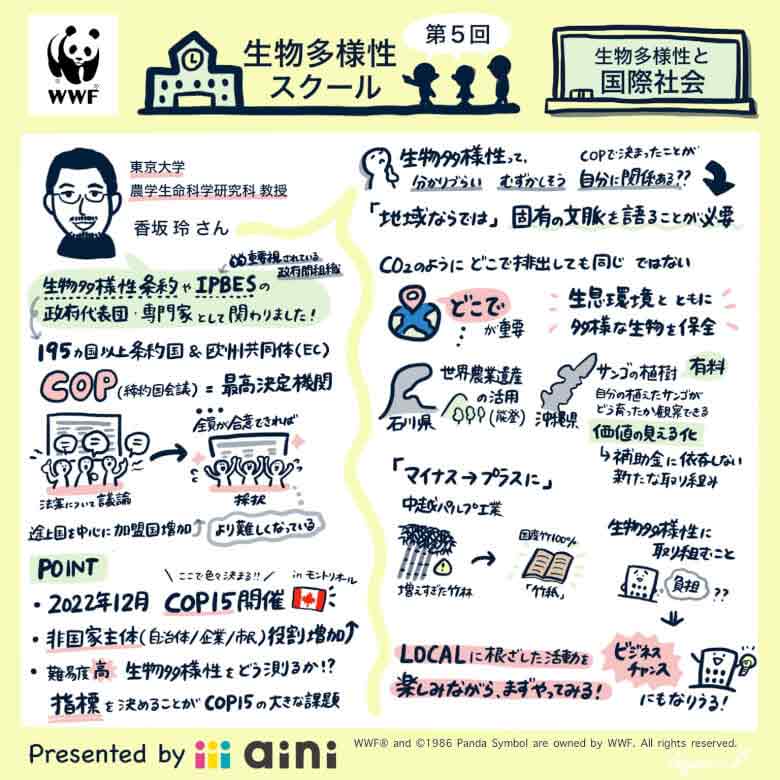 WWF
生物多様性
スクール
第5回
生物多様性と
国際社会
東京大学
農学生命科学研究科 教授
香坂 玲 さん
重要視されている
政府間組織
生物多様性条約やIPBESの
政府代表団・専門家として関わりました!
195ヵ国以上条約国 & 欧州共同体(EC)
COP(締約国会議) = 最高決定機関
全員が合意できれば
法案について議論
採択
途上国を中心に加盟国増加↑
より難しくなっている
POINT
ここで色々決まる!!
in モントリオール
・2022年12月 COP15開催
・非国家主体(自治体/企業/市民)役割増加↑
・難易度高 生物多様性をどう測るか!?
指標を決めることがCOP15の大きな課題
生物多様性って、
分かりづらい むずかしそう
COPで決まったことが
自分に関係ある??
「地域ならでは」固有の文脈を語ることが必要
CO2のように どこで排出しても同じ ではない
どこで
が重要
生息環境とともに
多様な生物を保全
石川県
世界農業遺産
の活用
(能登)
沖縄県
サンゴの植樹 有料
自分の植えたサンゴが
どう育ったか観察できる
価値の見える化
↳補助金に依存しない
新たな取り組み
「マイナス→プラスに」
中越パルプ工業
増えすぎた竹林
国産竹100%
「竹紙」
生物多様性に
取り組むこと
負担 ??
LOCALに根ざした活動を
楽しみながら、まずやってみる!
ビジネス
チャンス
にもなりうる!
Presented by aini
WWF® and ©1986 Panda Symbol are owned by WWF. All rights reserved.